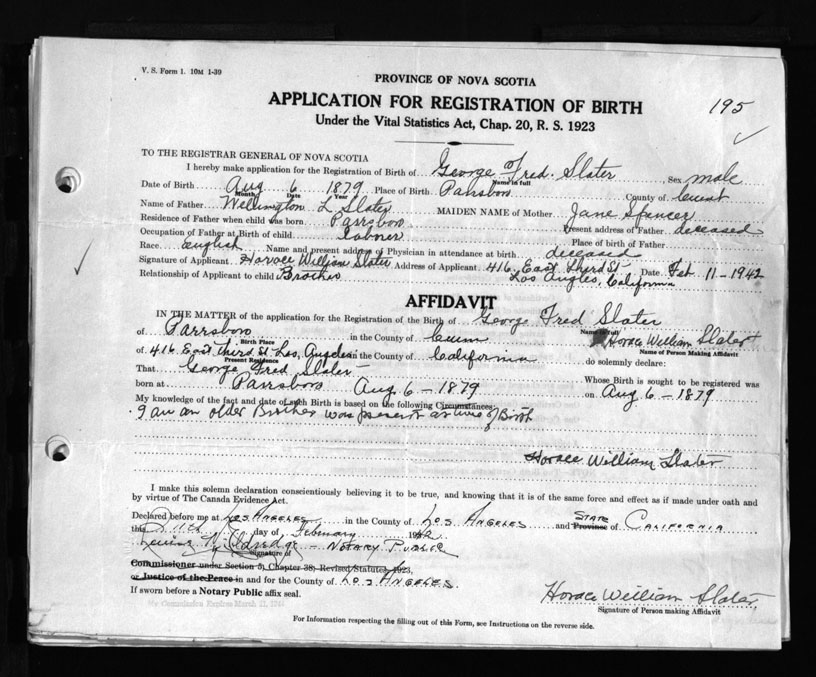 V. S. Form 1. 10M 1-39
PROVINCE OF NOVA SCOTIA
APPLICATION FOR REGISTRATION OF BIRTH
195
Under the Vital Statistics Act, Chap. 20, R. S. 1923
TO THE REGISTRAR GENERAL OF NOVA SCOTIA
I hereby make application for the Registration of Birth of George Fred. Slater Sex male
Name in full
Date of Birth Aug 6 1879 Place of Birth Parrsboro County of
Month Date Year
Name of Father Wellington L Slater MAIDEN NAME of Mother Jane Spencer
Residence of Father when child was born Parrsboro Present address of Father deceased
Occupation of Father at Birth of child laborer Place of birth of Father
Race English Name and present address of Physician in attendance at birth deceased
Signature of Applicant Horace William Slater Address of Applicant 416 East Third St. Date Feb 11-1942
Relationship of Applicant to child Brother Los Angles, California
AFFIDAVIT
IN THE MATTER of the application for the Registration of the Birth of George Fred Slater
Name in full
of Parrsboro in the County of Cum Horace William Slater
Birth Place Name of Person Making Affidavit
of 416 East Third St Los Angeles in the County of California do solemnly declare:
Present Residence
That George Fred Slater Whose Birth is sought to be registered was
born at Parrsboro Aug. 6-1879 on Aug 6-1879
My knowledge of the fact and date of such Birth is based on the following Circumstances:
I am an older Brother was present at time of Birth
Horace William Slater
I make this solemn declaration conscientiously believing it to be true, and knowing that it is of the same force and effect as if made under oath and
by virtue of The Canada Evidence Act.
Declared before me at Los Angeles in the County of Los Angeles and State Province of California
this 11th day of February 1942
- Notary Public
Signature of
Commissioner under Section 5, Chapter 38, Revised Statutes, 1923,
or Justice of the Peace in and for the County of Los Angeles.
If sworn before a Notary Public affix seal.
My Commission Expires March
Horace William Slater
Signature of Person making Affidavit
For Information respecting the filling out of this Form, see Instructions on the reverse side.